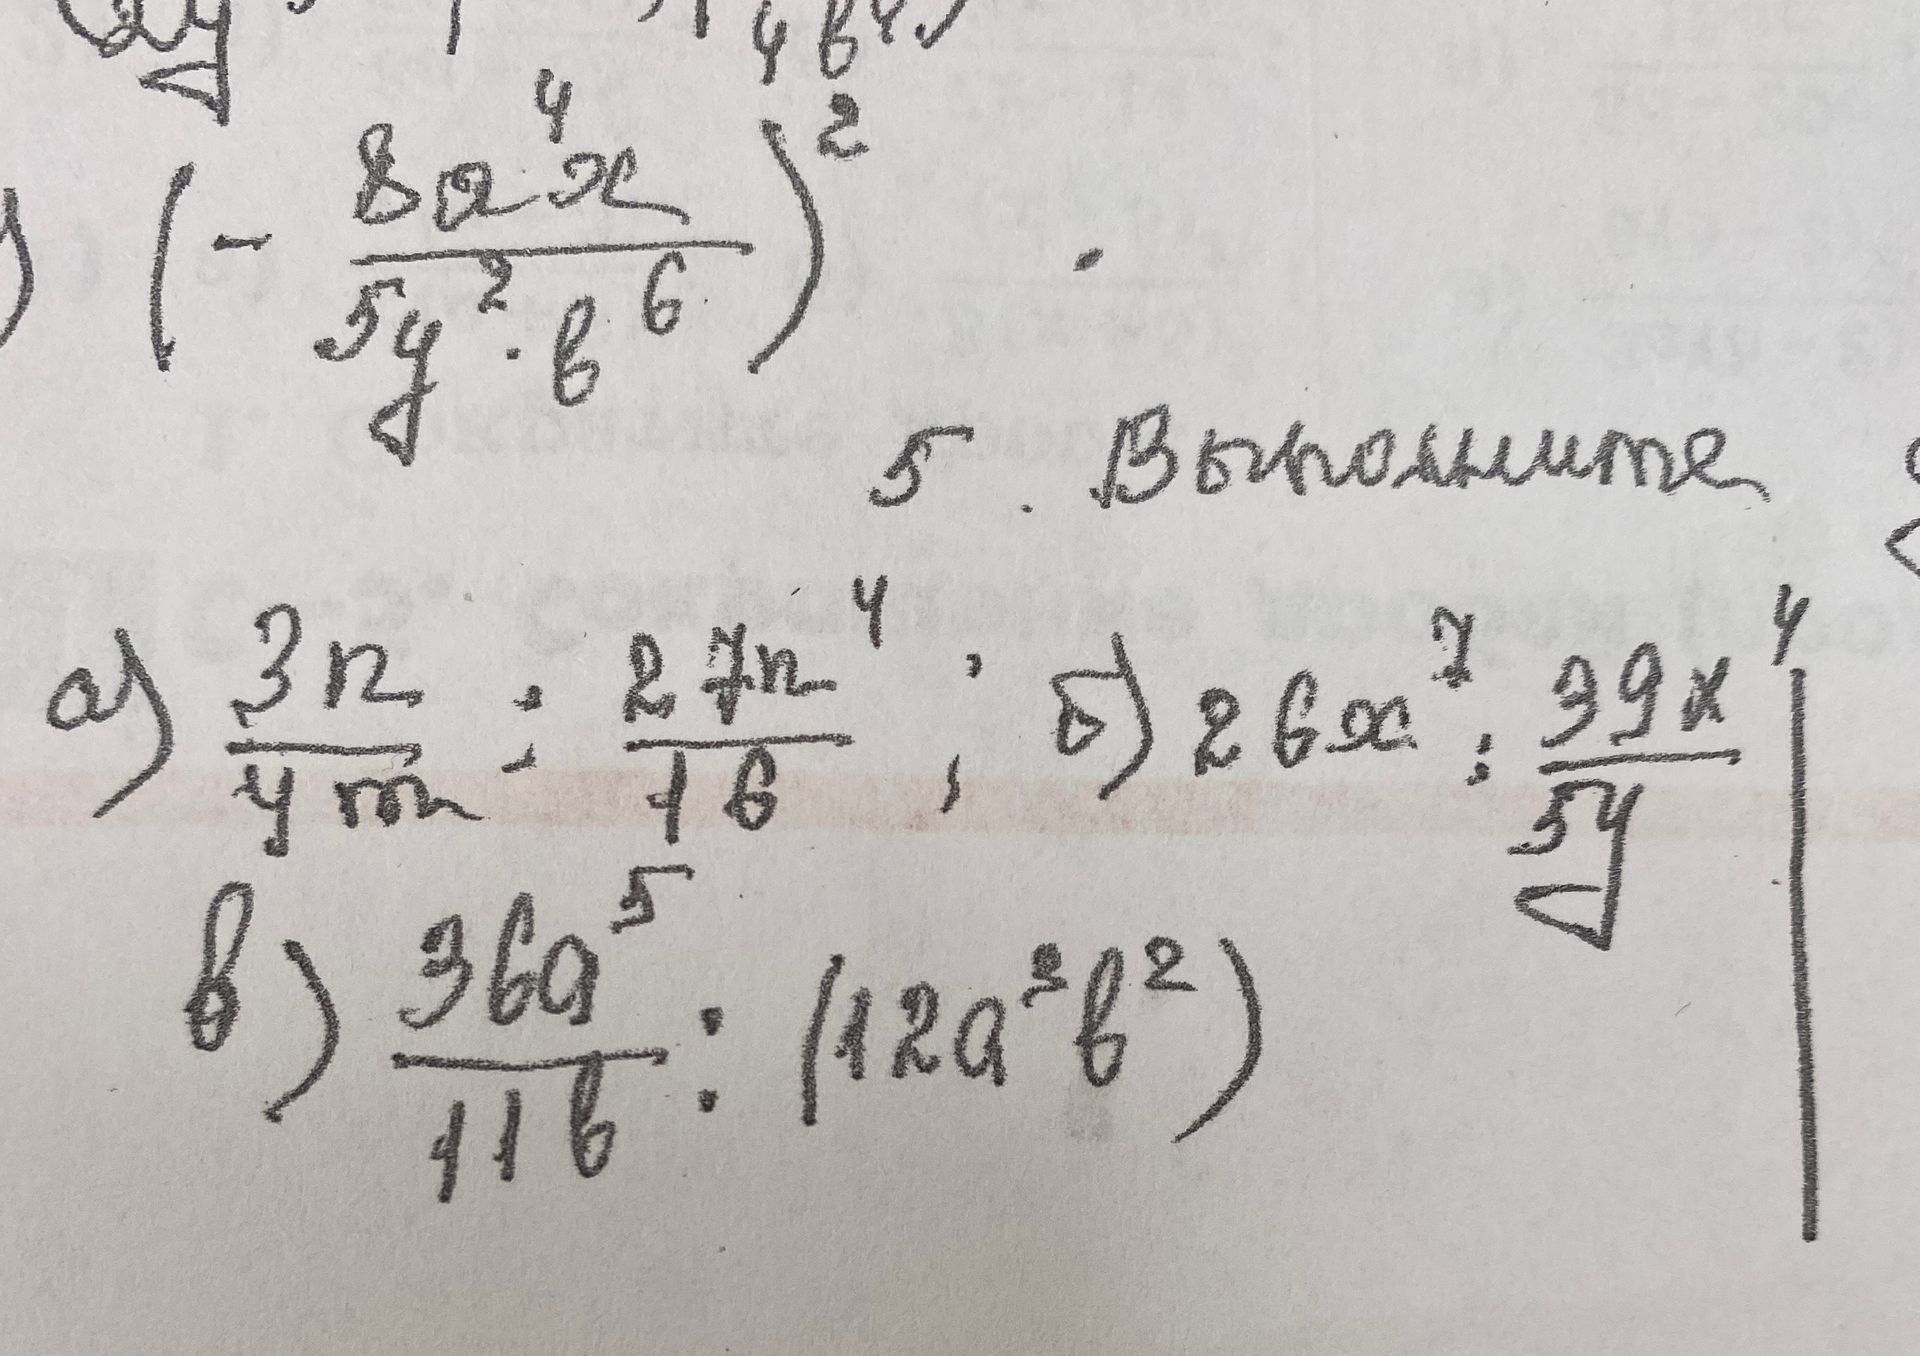 (- 8a⁴x / 5y² · b⁶)²
5. Выполните
а) 3n / 4m : 27n⁴ / 16 ; б) 26x⁷ : 39x⁴ / 5y
в) 36a⁵ / 11b : (12a³b²)